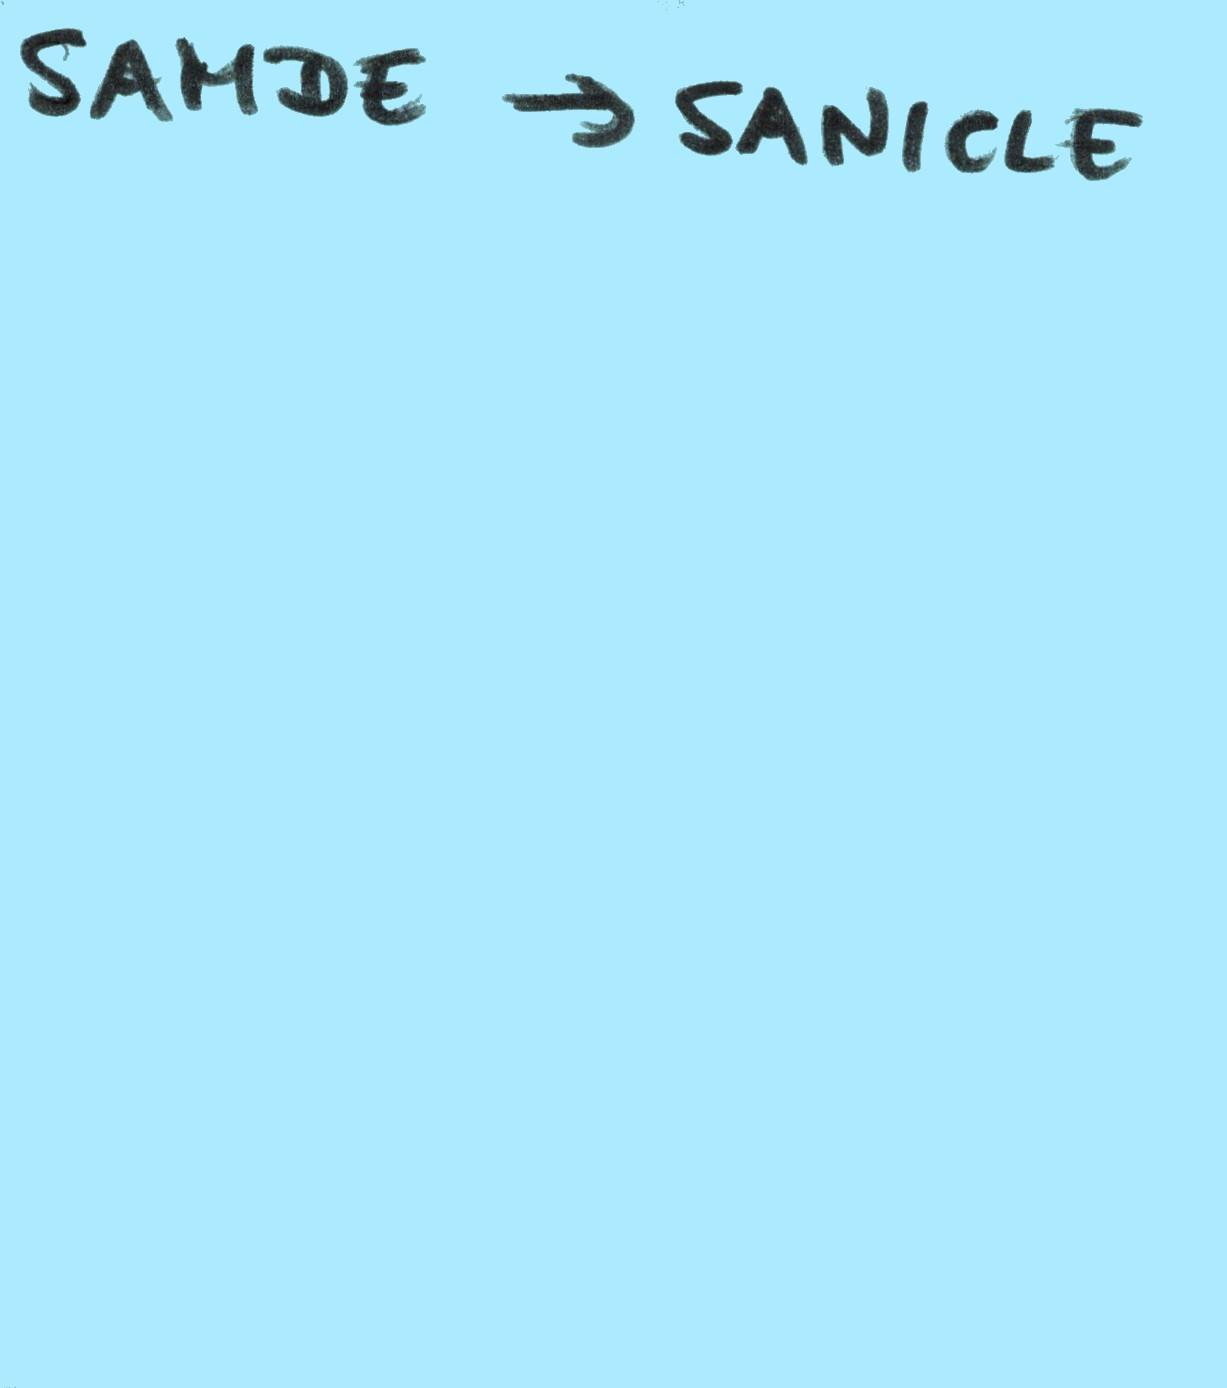 SAMDE → SANICLE